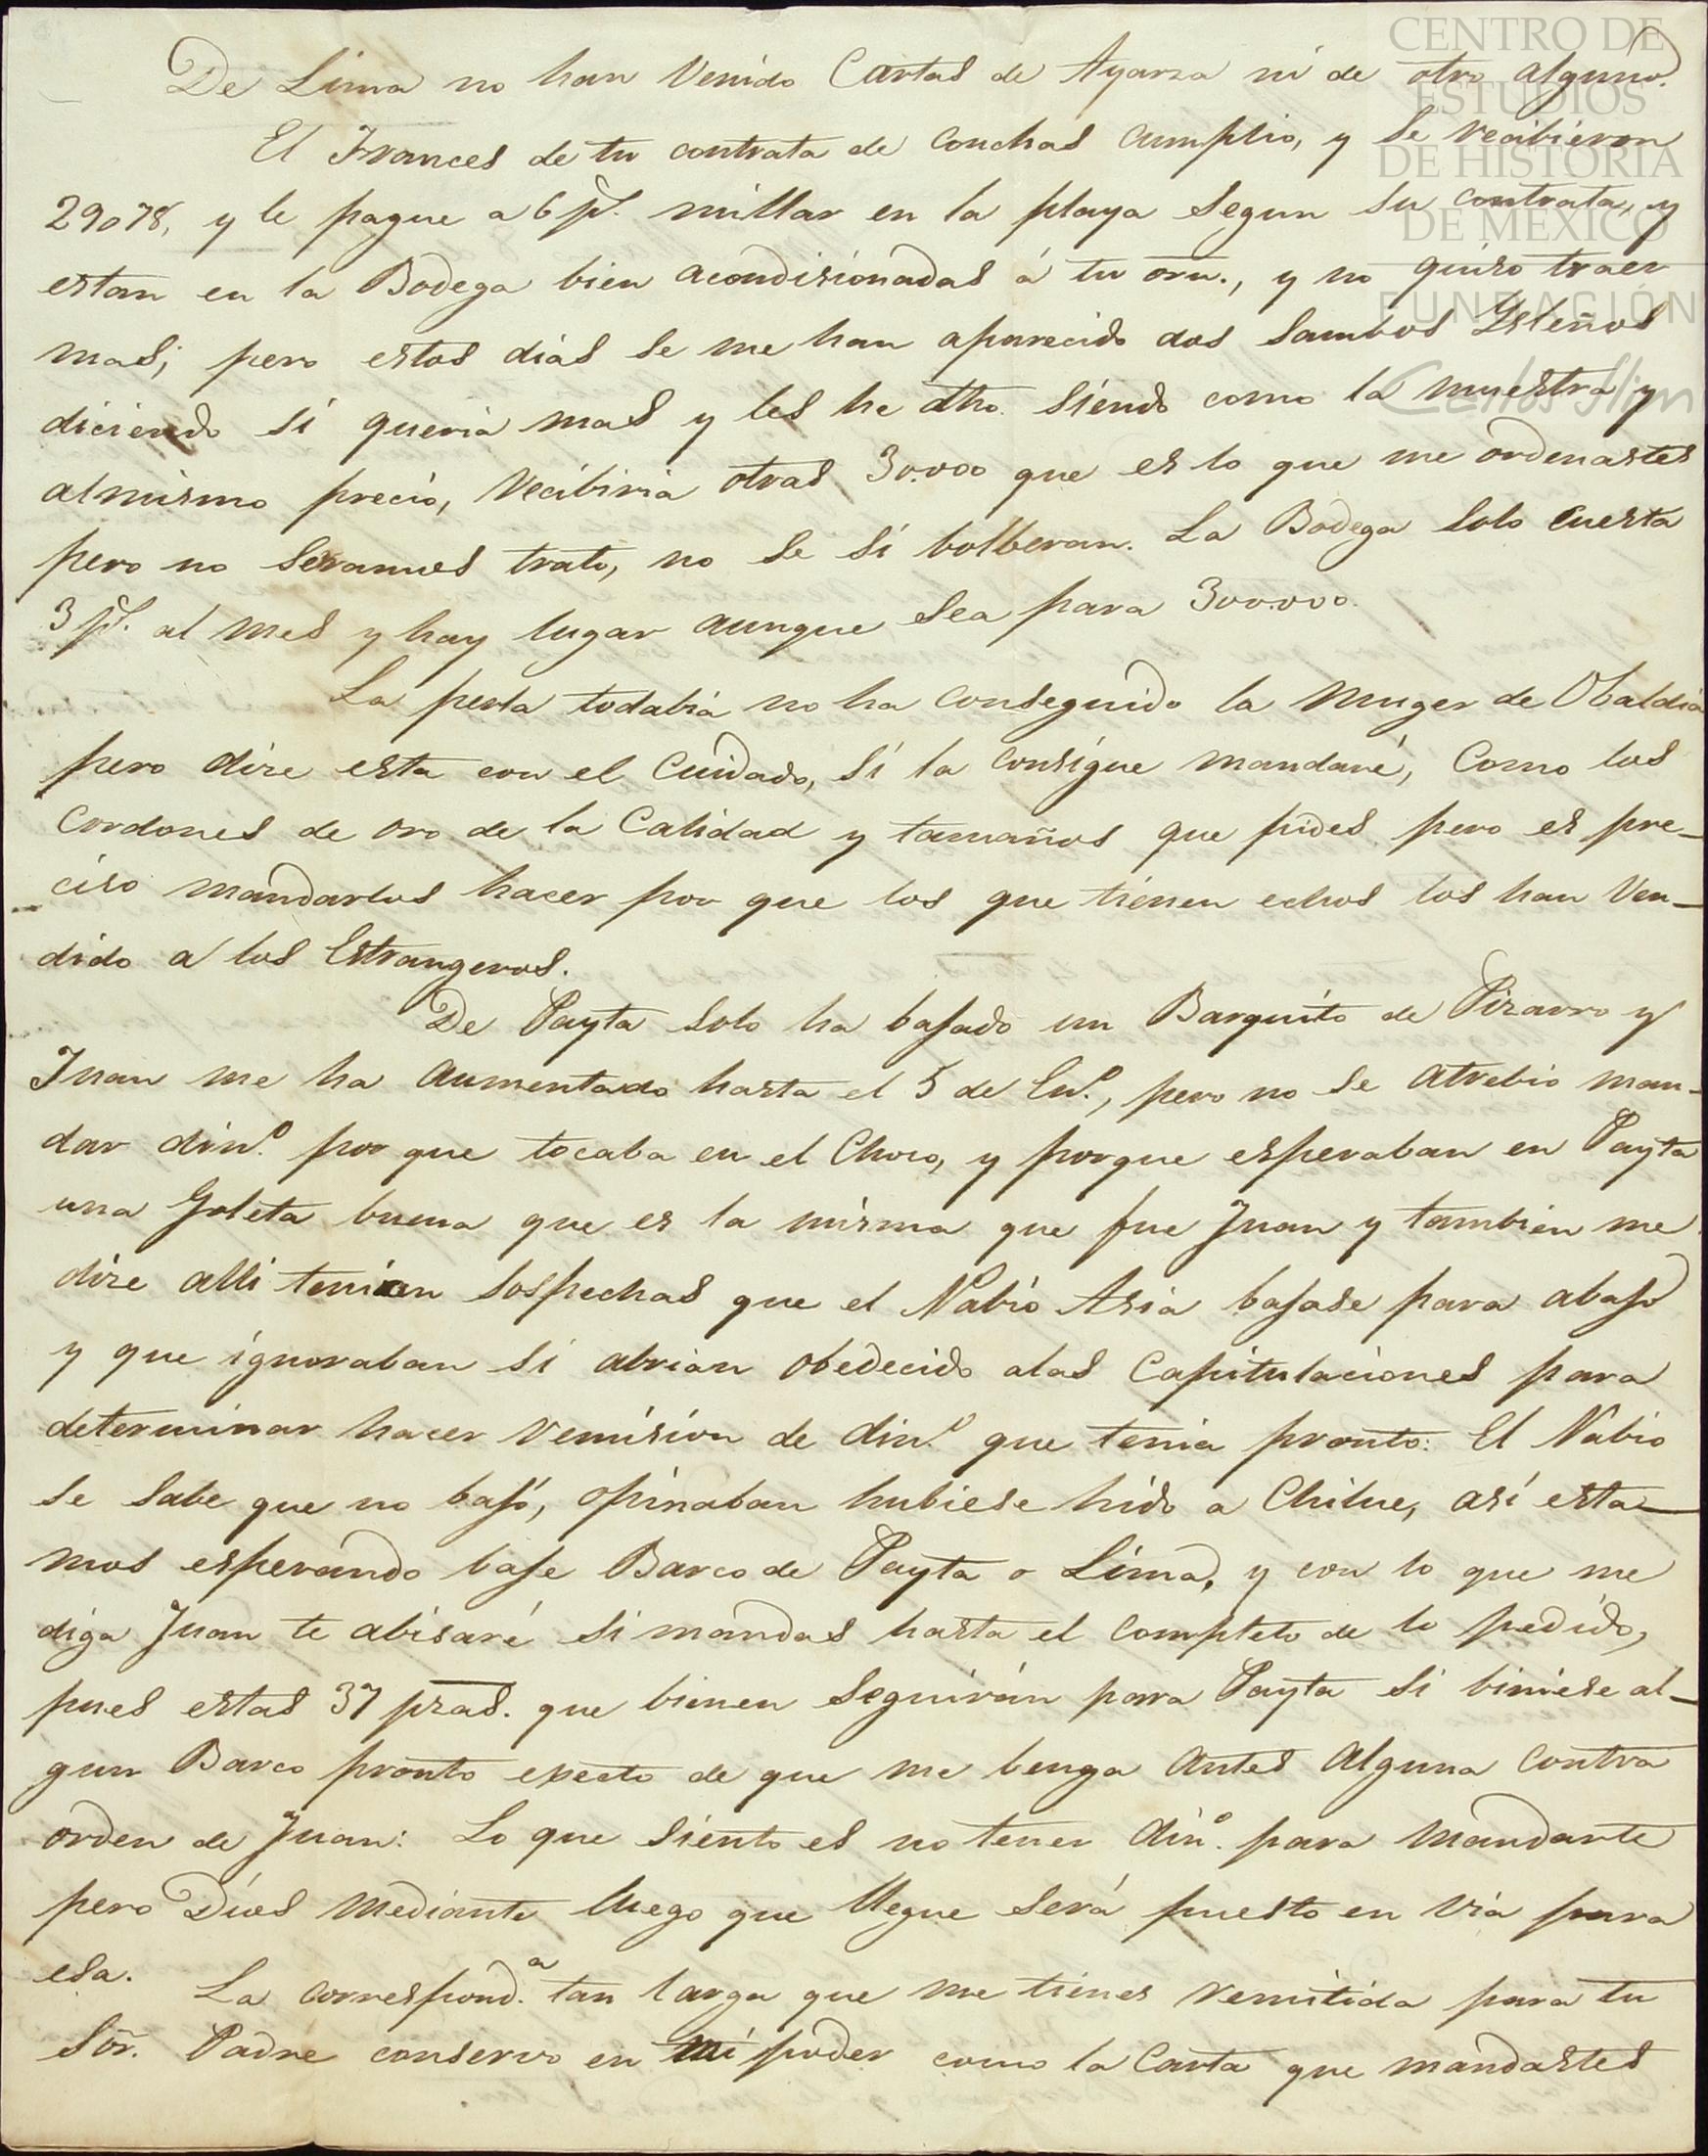 CENTRO DE
ESTUDIOS
DE HISTORIA
DE MÉXICO
FUNDACIÓN
Carlos Slim
De Lima no han Venido Cartas de Ayarza ni de otro alguno.
El Frances de tu contrata de conchas cumplio, y se recibieron
29078, y le pague a 6 p.s millar en la playa segun su contrata, y
estan en la Bodega bien acondisionadas á tu orn., y no quiso traer
mas; pero estos dias se me han aparecido dos Sambos Ysleños
diciendo si queria mas y les he dho. siendo como la muestra y
al mismo precio, recibiria otras 30.000 que es lo que me ordenastes
pero no trato, no se si bolberan. La Bodega solo cuesta
3 p.s al mes y hay lugar aunque sea para 300.000.
La perla todabia no ha conseguido la Muger de Obaldia
pero dize esta con el Cuidado, si la consigue mandaré, Como los
Cordones de oro de la Calidad y tamaños que pides pero es pre-
ciso mandarlos hacer por que los que tienen echos los han Ven-
dido a los Estrangeros.
De Payta solo ha bajado un Barquito de Pizarro y
Juan me ha aumentado hasta el 5 de En.o, pero no se atrebio man-
dar din.o por que tocaba en el Choco, y porque esperaban en Payta
una Goleta buena que es la misma que fue Juan y tambien me
dize alli tenian sospechas que el Nabio Asia bajase para abajo
y que ignoraban si abrian obedecido alas Capitulaciones para
determinar hacer remision de din.o que tenia pronto: El Nabio
se sabe que no bajó, opinaban hubiese hido a Chilue, asi esta-
mos esperando baje Barco de Payta o Lima, y con lo que me
diga Juan te abisaré si mandas hasta el completo de lo pedido,
pues estas 37 pzas. que bienen seguirán para Payta si biniese al-
gun Barco pronto execto de que me benga antes alguna contra
orden de Juan: Lo que siento es no tener din.o para mandarte
pero Dios mediante luego que llegue será puesto en via para
esa. La correspond.a tan larga que me tienes remitida para tu
Sõr. Padre conservo en mi poder como la Carta que mandastes